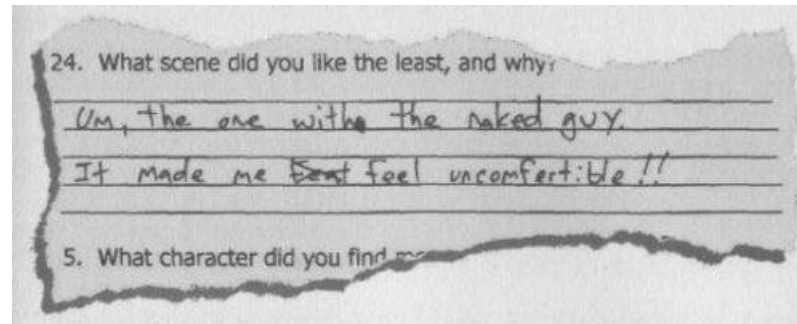 24. What scene did you like the least, and why?
Um, the one with the naked guy.
It made me feel uncomfertible!!
5. What character did you find